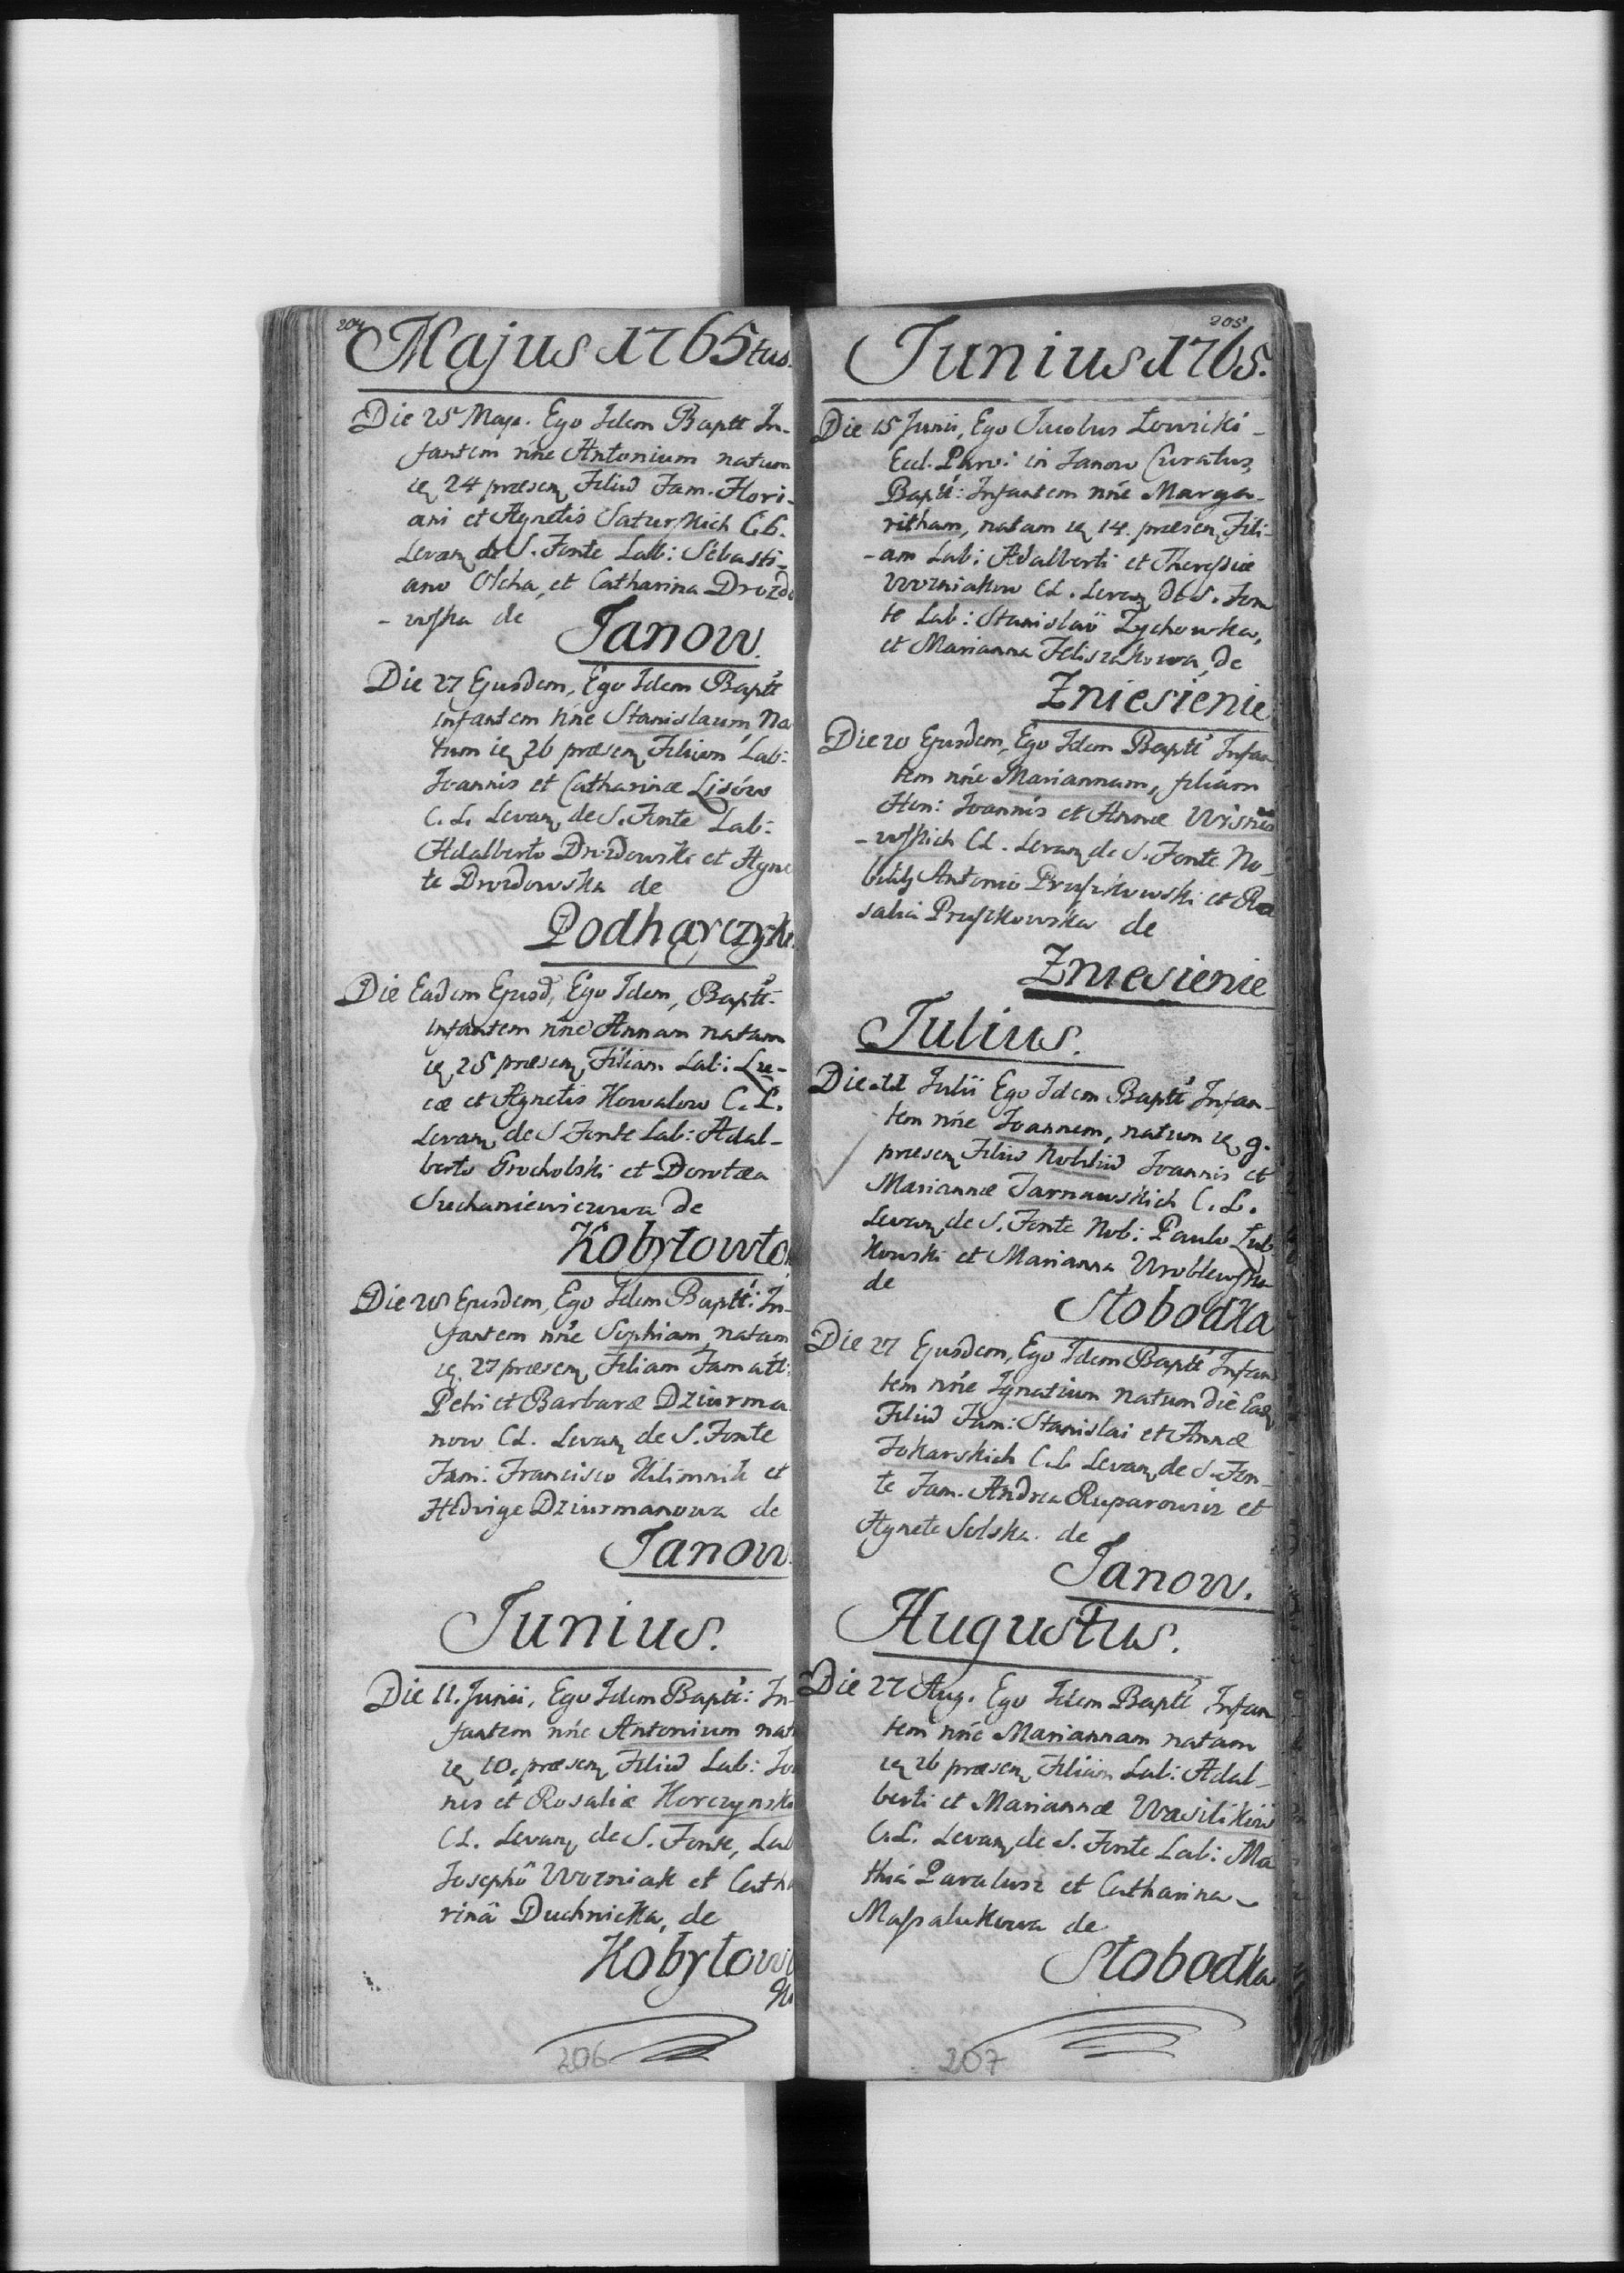 204
Majus 1765tus.
Die 25 Maja. Ego Idem Baptt In-
fantem nne Antonium natum
ie 24 præsen Filiu Fam. Flori-
ani et Agnetis Saturskich C.L.
Levan de S. Fonte Lab: Sebasti-
ano Olcha, et Catharina Drozdo
-wska de
Janow.
Die 27 Ejusdem, Ego Idem Baptt
Infantem nne Stanislaum, Na
tum ie 26 præsen Filium Lab:
Joannis et Catharinæ Lisów
C. L. Levan de S. Fonte Lab:
Adalberto Drozdowski et Agne
te Drozdowska de
Podhayczyki
Die Eadem Ejusd, Ego Idem, Baptt.
Infantem nne Annam natam
ie 25 præsen Filiam Lab: Lu-
cæ et Agnetis Kowalow C. L.
Levan de S Fonte Lab: Adal-
berto Grocholski et Dorotæa
Suchaniewiczowa de
Kobyłowło
Die 28 Ejusdem, Ego Idem Baptt: In-
fantem nne Sophiam natam
ie 27 præsen Filiam Famatt:
Petri et Barbaræ Dziurma
now CL. Levan de S. Fonte
Fam: Francisco Kilimnik et
Hedvige Dziurmanowa de
Janow.
Junius.
Die 11. Junii, Ego Idem Baptt: In-
fantem nne Antonium nat
ie 10. præsen Filiu Lab: Joa
nis et Rosaliæ Horczynski
CL. Levan de S. Fonte, Lab
Josephô Wozniak et Catha
rinâ Duchnicka, de
Kobyłow
ki
206
205
Junius 1765.
Die 15 Junii, Ego Jacobus Łowicki
Eccl. Parô: in Janow Curatus,
Baptt: Infantem nne Marga-
ritham, natam ie 14. præsen Fili-
-am Lab: Adalberti et Theressiæ
Wozniakow CL. Levan de S. Fon
te Lab: Stanislaô Zychowka,
et Marianna Feliszakowa, de
Zniesienie
Die 20 Ejusdem, Ego Idem Baptt Infan
tem nne Mariannam, filiam
Hon: Joannis et Annæ Wisnio
-wskich CL. Levan de S. Fonte No-
bilib Antonio Pruszkowski et Ro
salia Pruszkowska de
Zniesienie
Julius.
Die 11 Julii Ego Idem Baptt Infan-
tem nne Joannem, natum ie 9.
præsen Filiu Nobiliu Joannis et
Mariannæ Tarnawskich C. L.
Levan de S. Fonte Nob: Paulo Łub
kowski et Marianna Wroblewska
de
Słobodka
Die 27 Ejusdem, Ego Idem Baptt Infan
tem nne Ignatium natum die Ead
Filiu Fam: Stanislai et Annæ
Tokarskich C.L Levan de S. Fon-
te Fam. Andrea Ruparowicz et
Agnete Solska. de
Janow.
Augustus.
Die 27 Aug. Ego Idem Baptt Infan
tem nne Mariannam natam
ie 26 præsen Filiam Lab: Adal-
berti et Mariannæ Wasilików
C.L. Levan de S. Fonte Lab: Ma
thia Paralusz et Catharina
Massalukowa de
Słobodka
207